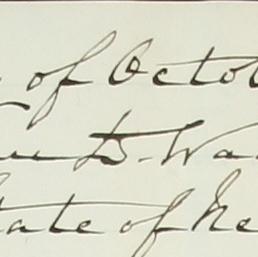 of Octo
D. Wa
tate of Ne